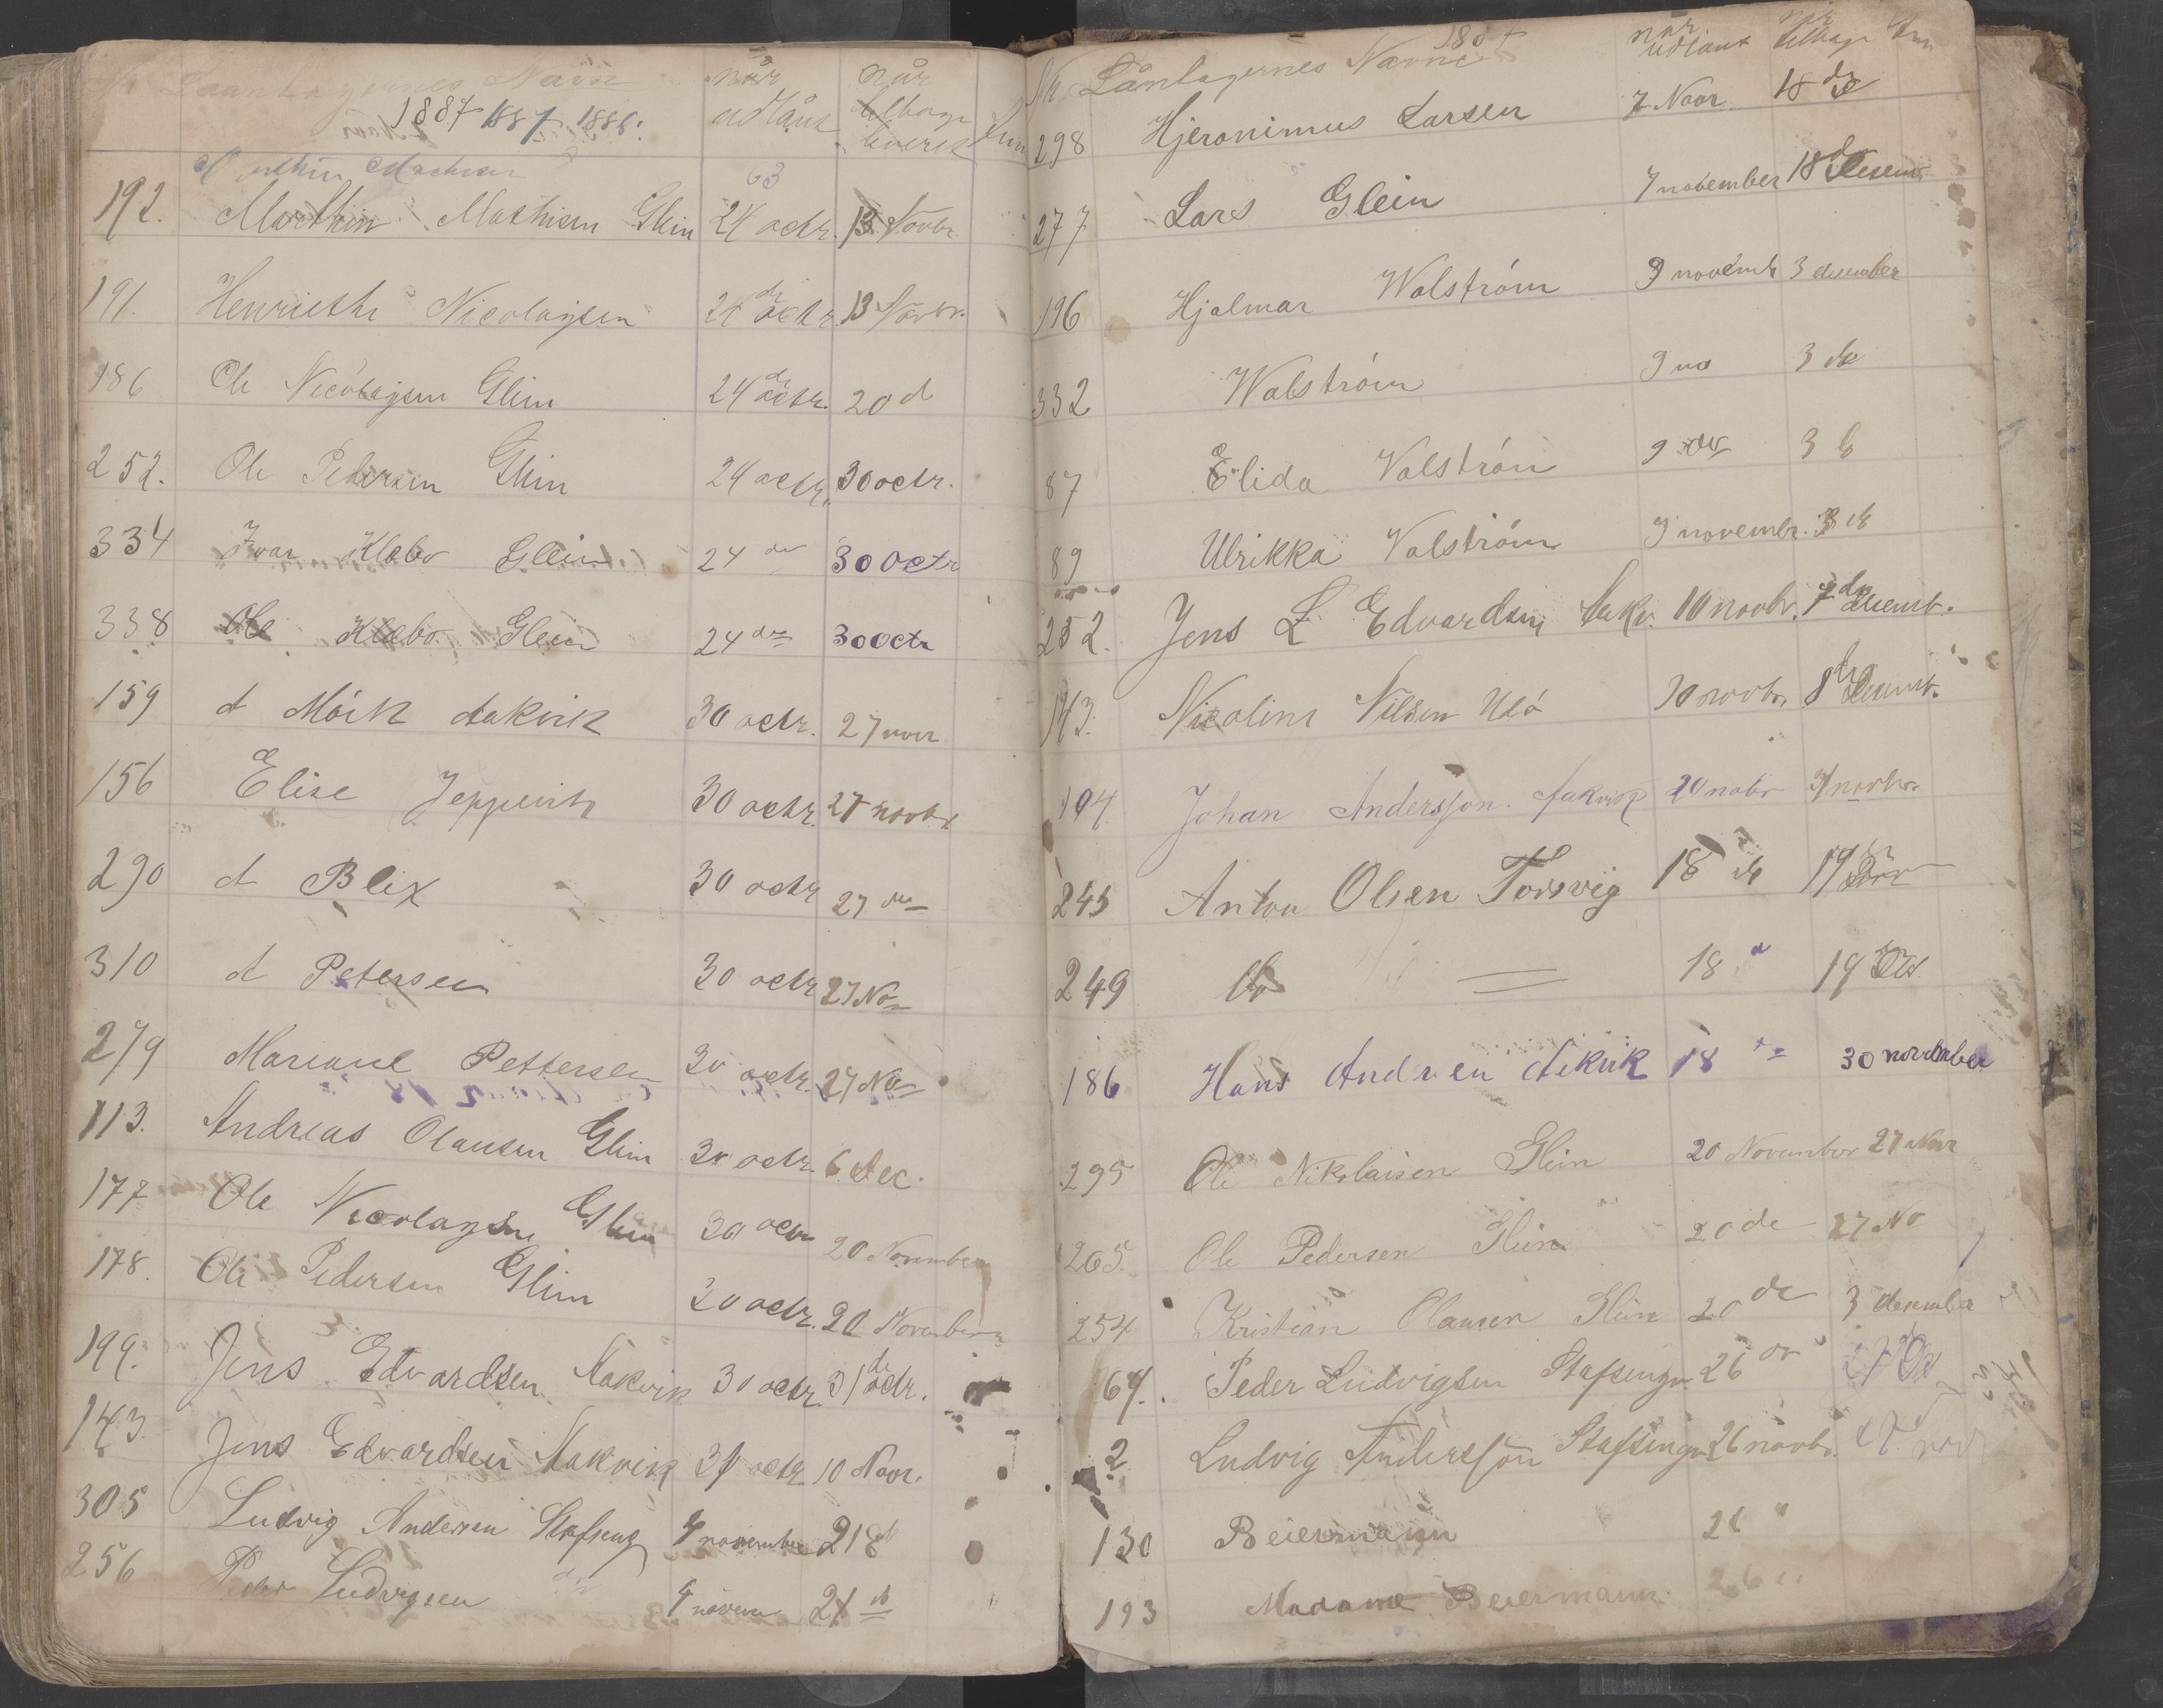 Laantagernes Navn når udlånt når tilbage leveret
1887 1887 1886.
192. Marthin Mathisen Glein 24 octr. 13 Novbr
191. Henriethe Nicolaysen 24 de octr. 13 Novbr.
186 Ole Nicolaysen Glein 24 de octr. 20 d
252. Ole Pedersen Glein 24 octr. 30 octr.
334 Ivar Klæbo Glein 24 de 30 Octr
338 Ole Klæbo Glein 24 de 30 Octr
159 A Mörk Aakvik 30 octr. 27 nover
156 Elise Jeppesen 30 octr. 27 novbr
290 A Blix 30 octr 27 de
310 A Petersen 30 octr 27 No
279 Mariane Pettersen 30 octr. 27 No
113. Andreas Olausen Glein 30 octr. 6 Dec.
177 Ole Nicolaysen Glein 30 octr 20 November
178. Ole Pedersen Glein 30 octr. 20 November
199. Jens Edvardsen Aakvik 30 octr. 31 de octr.
143. Jens Edvardsen Aakvik 31 octr. 10 Novr.
305 Ludvig Andersen Stafseng 4 november 21
256 Peder Ludvigsen 4 novem 21
Låntagernes Navne når udlånt når tilbage
298 Hjeronimus Larsen 7 Novr 18 de
277 Lars Glein 7 november 18 desem
196 Hjalmar Walström 9 novemb 3 desember
332 Walström 9 no 3 de
87 Elida Valström 9 3
89 Ulrikka Valström 9 novembr. 3 d
252. Jens L Edvardsen Aakv. 10 novbr. 7 de Decemb.
143. Nicoline Nilsen 10 novbr. 8 de Decemb.
194. Johan Andersson. Aakvik 10 nobr novbr
245 Anton Olsen Torsvig 18 de 19
249 do 18 " 19
186 Hans Andreen Aakvik 18 de 30 november
295 Ole Nikolaisen Glein 20 November 27 Novr
265. Ole Pedersen Glein 20 de 27 No
254 Kristian Olausen Glein 20 de 3 desember
Peder Ludvigsen Stafseng 26 27
2 Ludvig Andersson Stafseng 26 novbr. 27 nov
130 Beiermann 26 "
193 Madame Beiermann 26 "